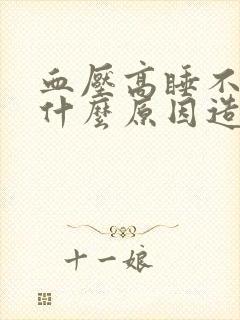 血壓高睡不
什麼原因造
十一娘